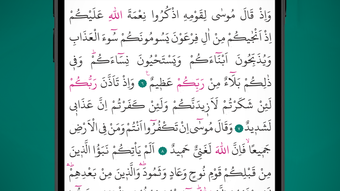 وَاِذْ قَالَ مُوسٰى لِقَوْمِهِ اذْكُرُوا نِعْمَةَ اللّٰهِ عَلَيْكُمْ
اِذْ اَنْجٰيكُمْ مِنْ اٰلِ فِرْعَوْنَ يَسُومُونَكُمْ سُٓوءَ الْعَذَابِ
وَيُذَبِّحُونَ اَبْنَٓاءَكُمْ وَيَسْتَحْيُونَ نِسَٓاءَكُمْۜ وَف۪ي
ذٰلِكُمْ بَلَٓاءٌ مِنْ رَبِّكُمْ عَظ۪يمٌ۟ ٦ وَاِذْ تَاَذَّنَ رَبُّكُمْ
لَئِنْ شَكَرْتُمْ لَاَز۪يدَنَّكُمْ وَلَئِنْ كَفَرْتُمْ اِنَّ عَذَاب۪ي
لَشَد۪يدٌ ٧ وَقَالَ مُوسٰٓى اِنْ تَكْفُرُٓوا اَنْتُمْ وَمَنْ فِي الْاَرْضِ
جَم۪يعاًۙ فَاِنَّ اللّٰهَ لَغَنِيٌّ حَم۪يدٌ ٨ اَلَمْ يَأْتِكُمْ نَبَؤُا الَّذ۪ينَ
مِنْ قَبْلِكُمْ قَوْمِ نُوحٍ وَعَادٍ وَثَمُودَۜ وَالَّذ۪ينَ مِنْ بَعْدِهِمْۜ